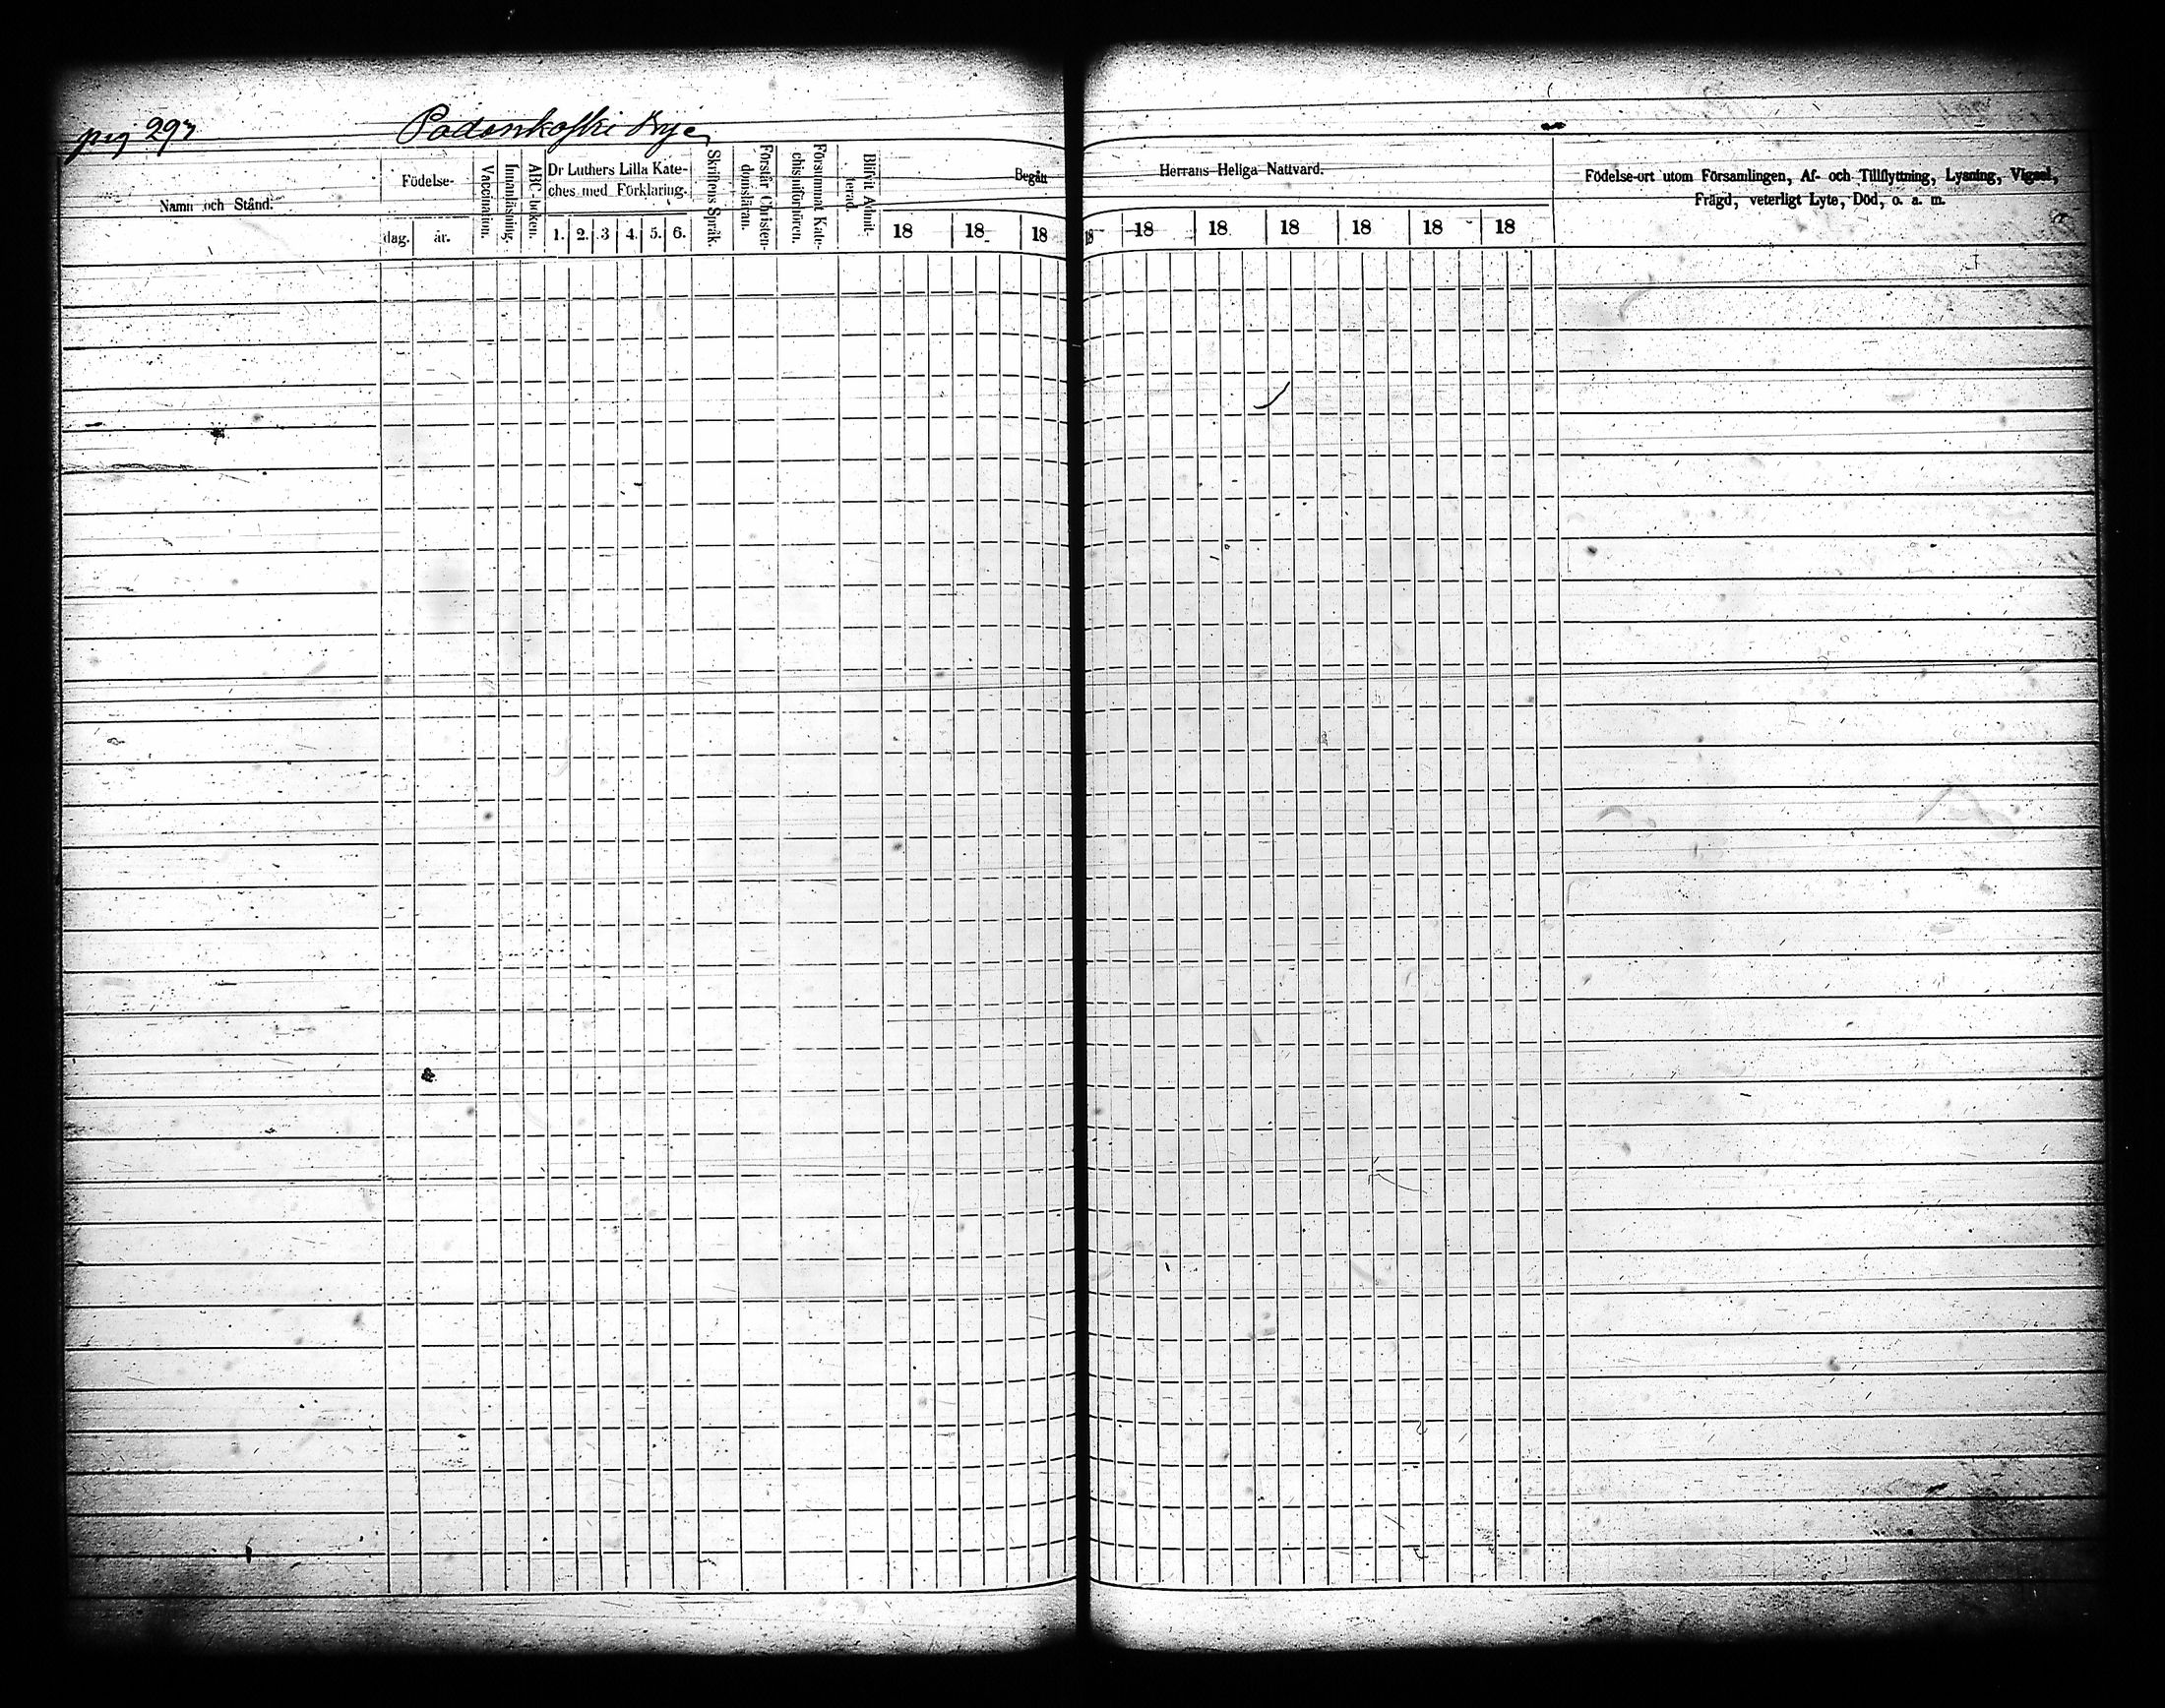 pag 293
Padankoski Bye
Namn och Stånd.
Födelse-
dag.
år.
Vaccination.
Innanläsning.
ABC-boken.
Dr Luthers Lilla Kate-
ches med Förklaring.
1. 2. 3 4. 5. 6.
Skriftens Språk.
Förstår Christen-
domsläran.
Försummat Kate-
chismiförhören.
Blifvit Admit-
terad.
Begått
Herrans Heliga Nattvard.
18 18 18 18 18 18 18 18 18 18
Födelse-ort utom Församlingen, Af- och Tillflyttning, Lysning, Vigsel,
Frägd, veterligt Lyte, Död, o. a. m.